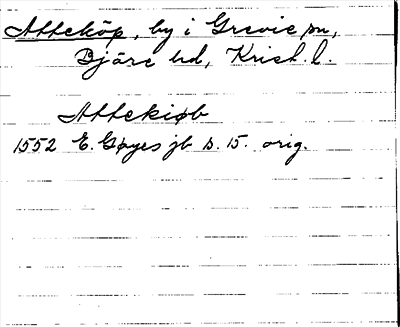 Atteköp, by i Grevie sn,
Bjäre hd, Krist. l.
Attekiøb
1552 E. Gøyes jb s. 15. orig.